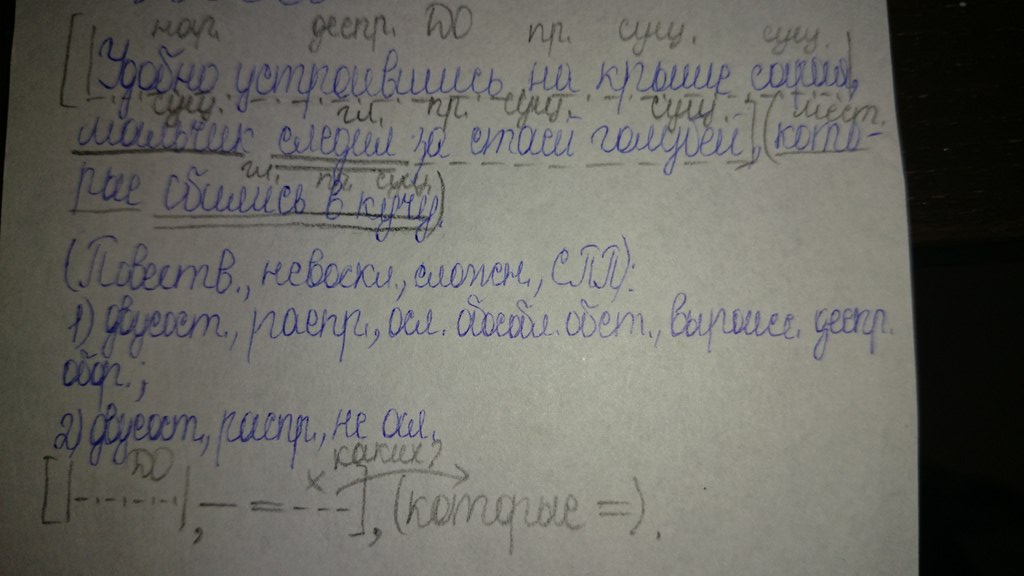 нар. деепр. ДО пр. сущ. сущ.
[|Удобно устроившись на крыше сарая|,
сущ. гл. пр. сущ. сущ. мест.
мальчик следил за стаей голубей], (кото-
гл. пр. сущ.
рые сбились в кучу).
(Повеств., невоскл., сложн., СПП):
1) двусост., распр., осл. обособл. обст., выраж. деепр.
обор.;
2) двусост., распр., не осл.
ДО х каких?
[|-·-·-·-|, — = - - -], (которые =).